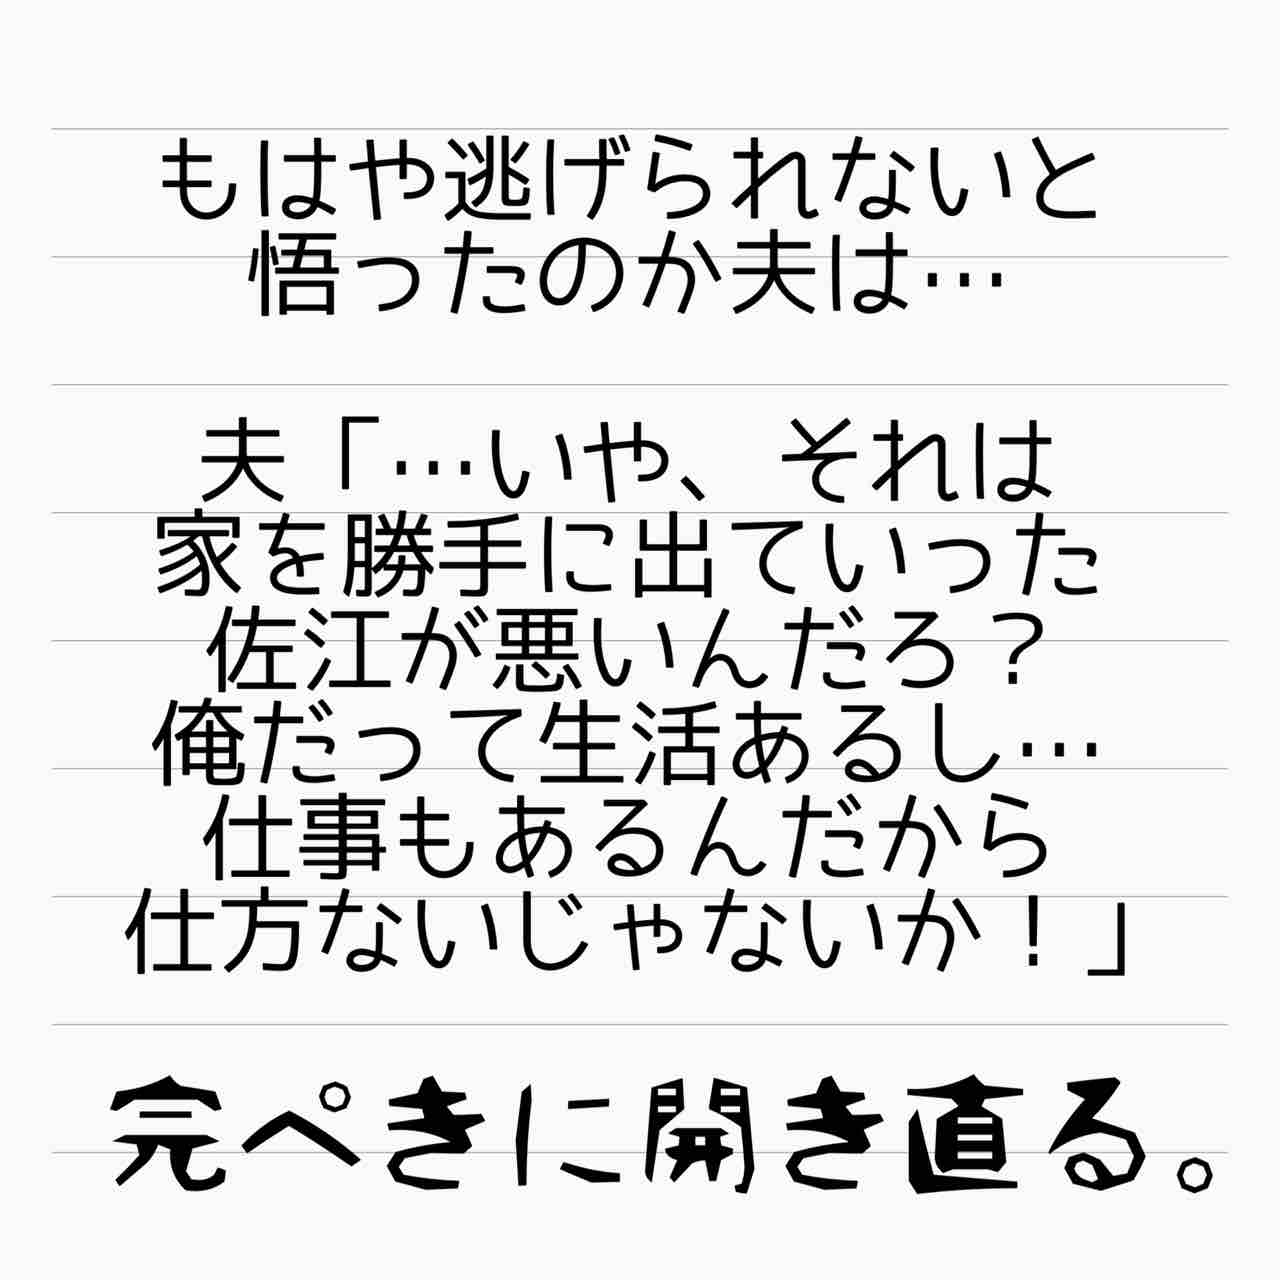 もはや逃げられないと
悟ったのか夫は…
夫「…いや、それは
家を勝手に出ていった
佐江が悪いんだろ？
俺だって生活あるし…
仕事もあるんだから
仕方ないじゃないか！」
完ぺきに開き直る。